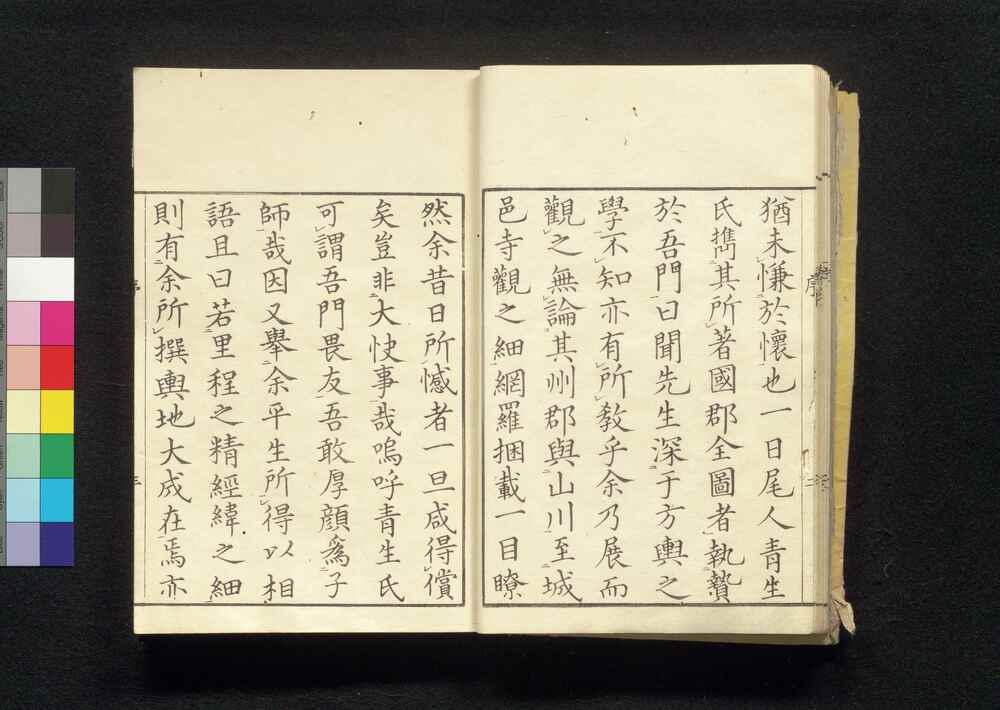 猶未慊於懷也一日尾人青生
氏攜其所著國郡全圖者執贄
於吾門曰聞先生深于方輿之
學不知亦有所教乎余乃展而
觀之無論其州郡與山川至城
邑寺觀之細網羅捆載一目瞭
然余昔日所憾者一旦咸得償
矣豈非大快事哉嗚呼青生氏
可謂吾門畏友吾敢厚顏爲子
師哉因又舉余平生所得以相
語且曰若里程之精經緯之細
則有余所撰輿地大成在焉亦